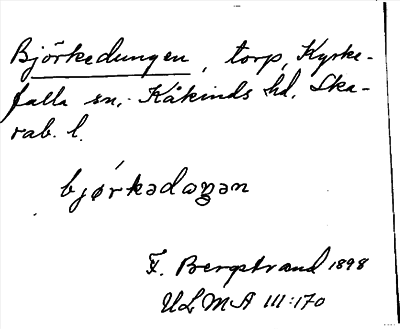 Björkedungen, torp, Kyrke-
falla sn, Kåkinds hd, Ska-
rab. l.
bjørkədaŋən
F. Bergstrand 1898
ULMA 111:170